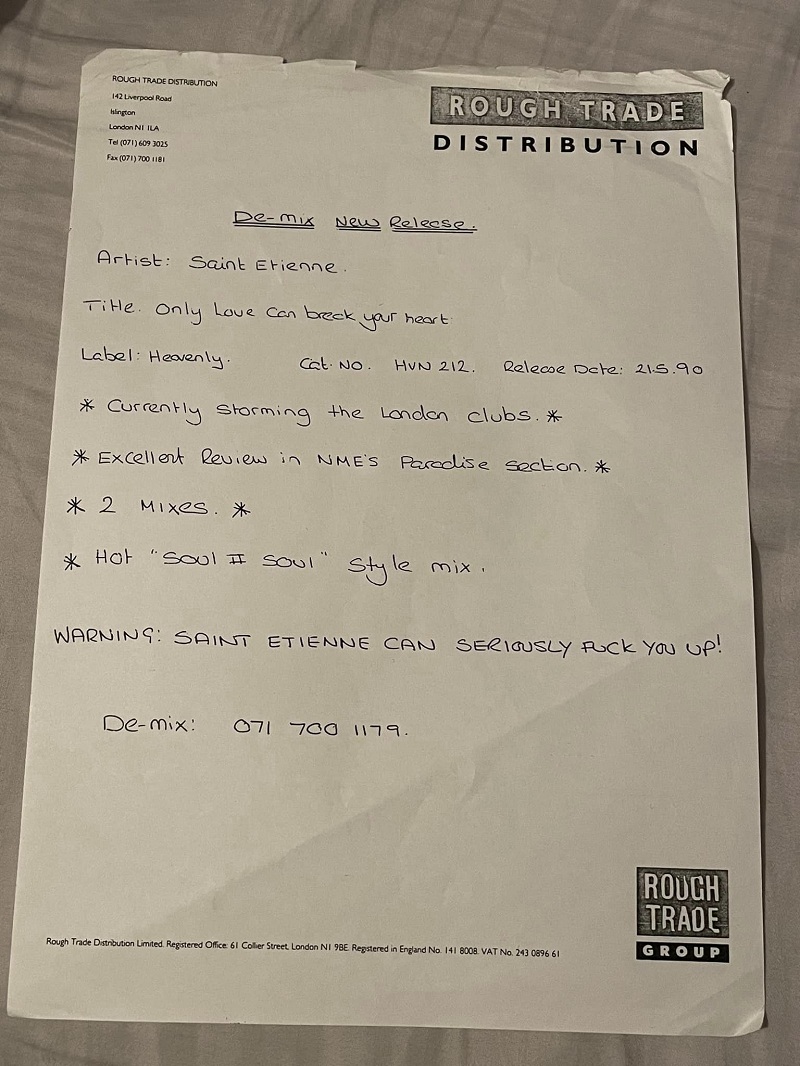 ROUGH TRADE DISTRIBUTION
142 Liverpool Road
Islington
London N1 1LA
Tel (071) 609 3025
Fax (071) 700 1181
ROUGH TRADE
DISTRIBUTION
De-mix New Release.
Artist: Saint Etienne.
Title. Only Love Can break your heart
Label: Heavenly. Cat. No. HVN 212. Release Date: 21.5.90
* Currently storming the London clubs. *
* Excellent Review in NME's Paradise section. *
* 2 Mixes. *
* Hot "Soul II Soul" style mix.
WARNING: SAINT ETIENNE CAN SERIOUSLY FUCK YOU UP!
De-mix: 071 700 1179.
ROUGH
TRADE
GROUP
Rough Trade Distribution Limited. Registered Office: 61 Collier Street, London N1 9BE. Registered in England No. 141 8008. VAT No. 243 0896 61